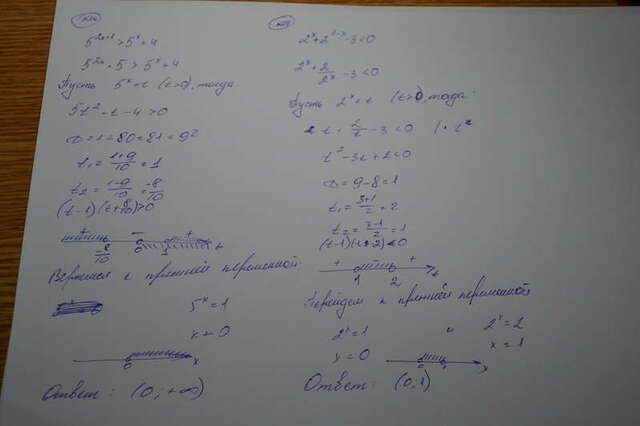 5^{2x+1} > 5^x + 4
5^{2x} · 5 > 5^x + 4
Пусть 5^x = t (t>0), тогда
5t² - t - 4 > 0
D = 1 + 80 = 81 = 9²
t₁ = (1+9)/10 = 1
t₂ = (1-9)/10 = -8/10
(t-1)(t+8/10) > 0
+ - + 
-8/10 0 1 t
Вернемся к прежней переменной
5^x = 1
x = 0
0 x
Ответ: (0; +∞)
2^x + 2^{1-x} - 3 < 0
2^x + 2/2^x - 3 < 0
Пусть 2^x = t (t>0), тогда:
t + 2/t - 3 < 0 | · t
t² - 3t + 2 < 0
D = 9 - 8 = 1
t₁ = (3+1)/2 = 2
t₂ = (3-1)/2 = 1
(t-1)(t-2) < 0
+ +
1 2 t
Перейдем к прежней переменной
2^x = 1 и 2^x = 2
x = 0 x = 1
0 1 x
Ответ: (0; 1)